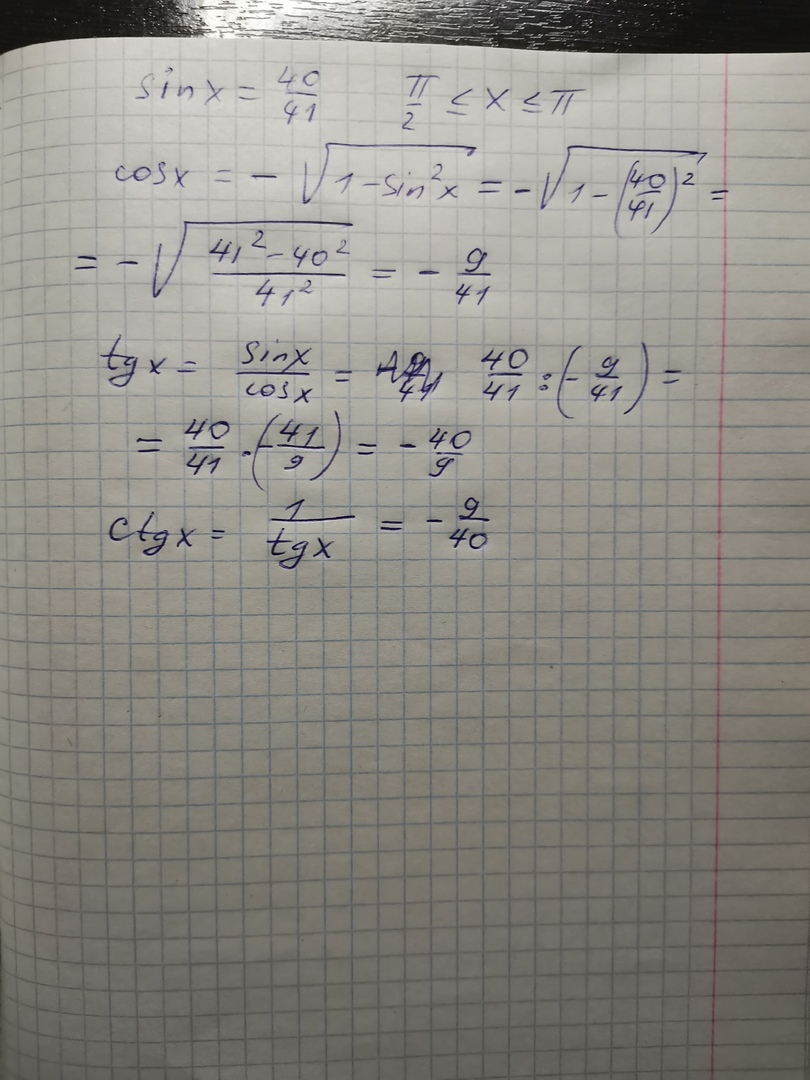 sinx = 40/41 π/2 ≤ x ≤ π
cosx = - √(1-sin²x) = -√(1-(40/41)²) =
= - √((41²-40²)/41²) = - 9/41
tgx = sinx/cosx = 40/41 : (- 9/41) =
= 40/41 · (-41/9) = - 40/9
ctgx = 1/tgx = - 9/40